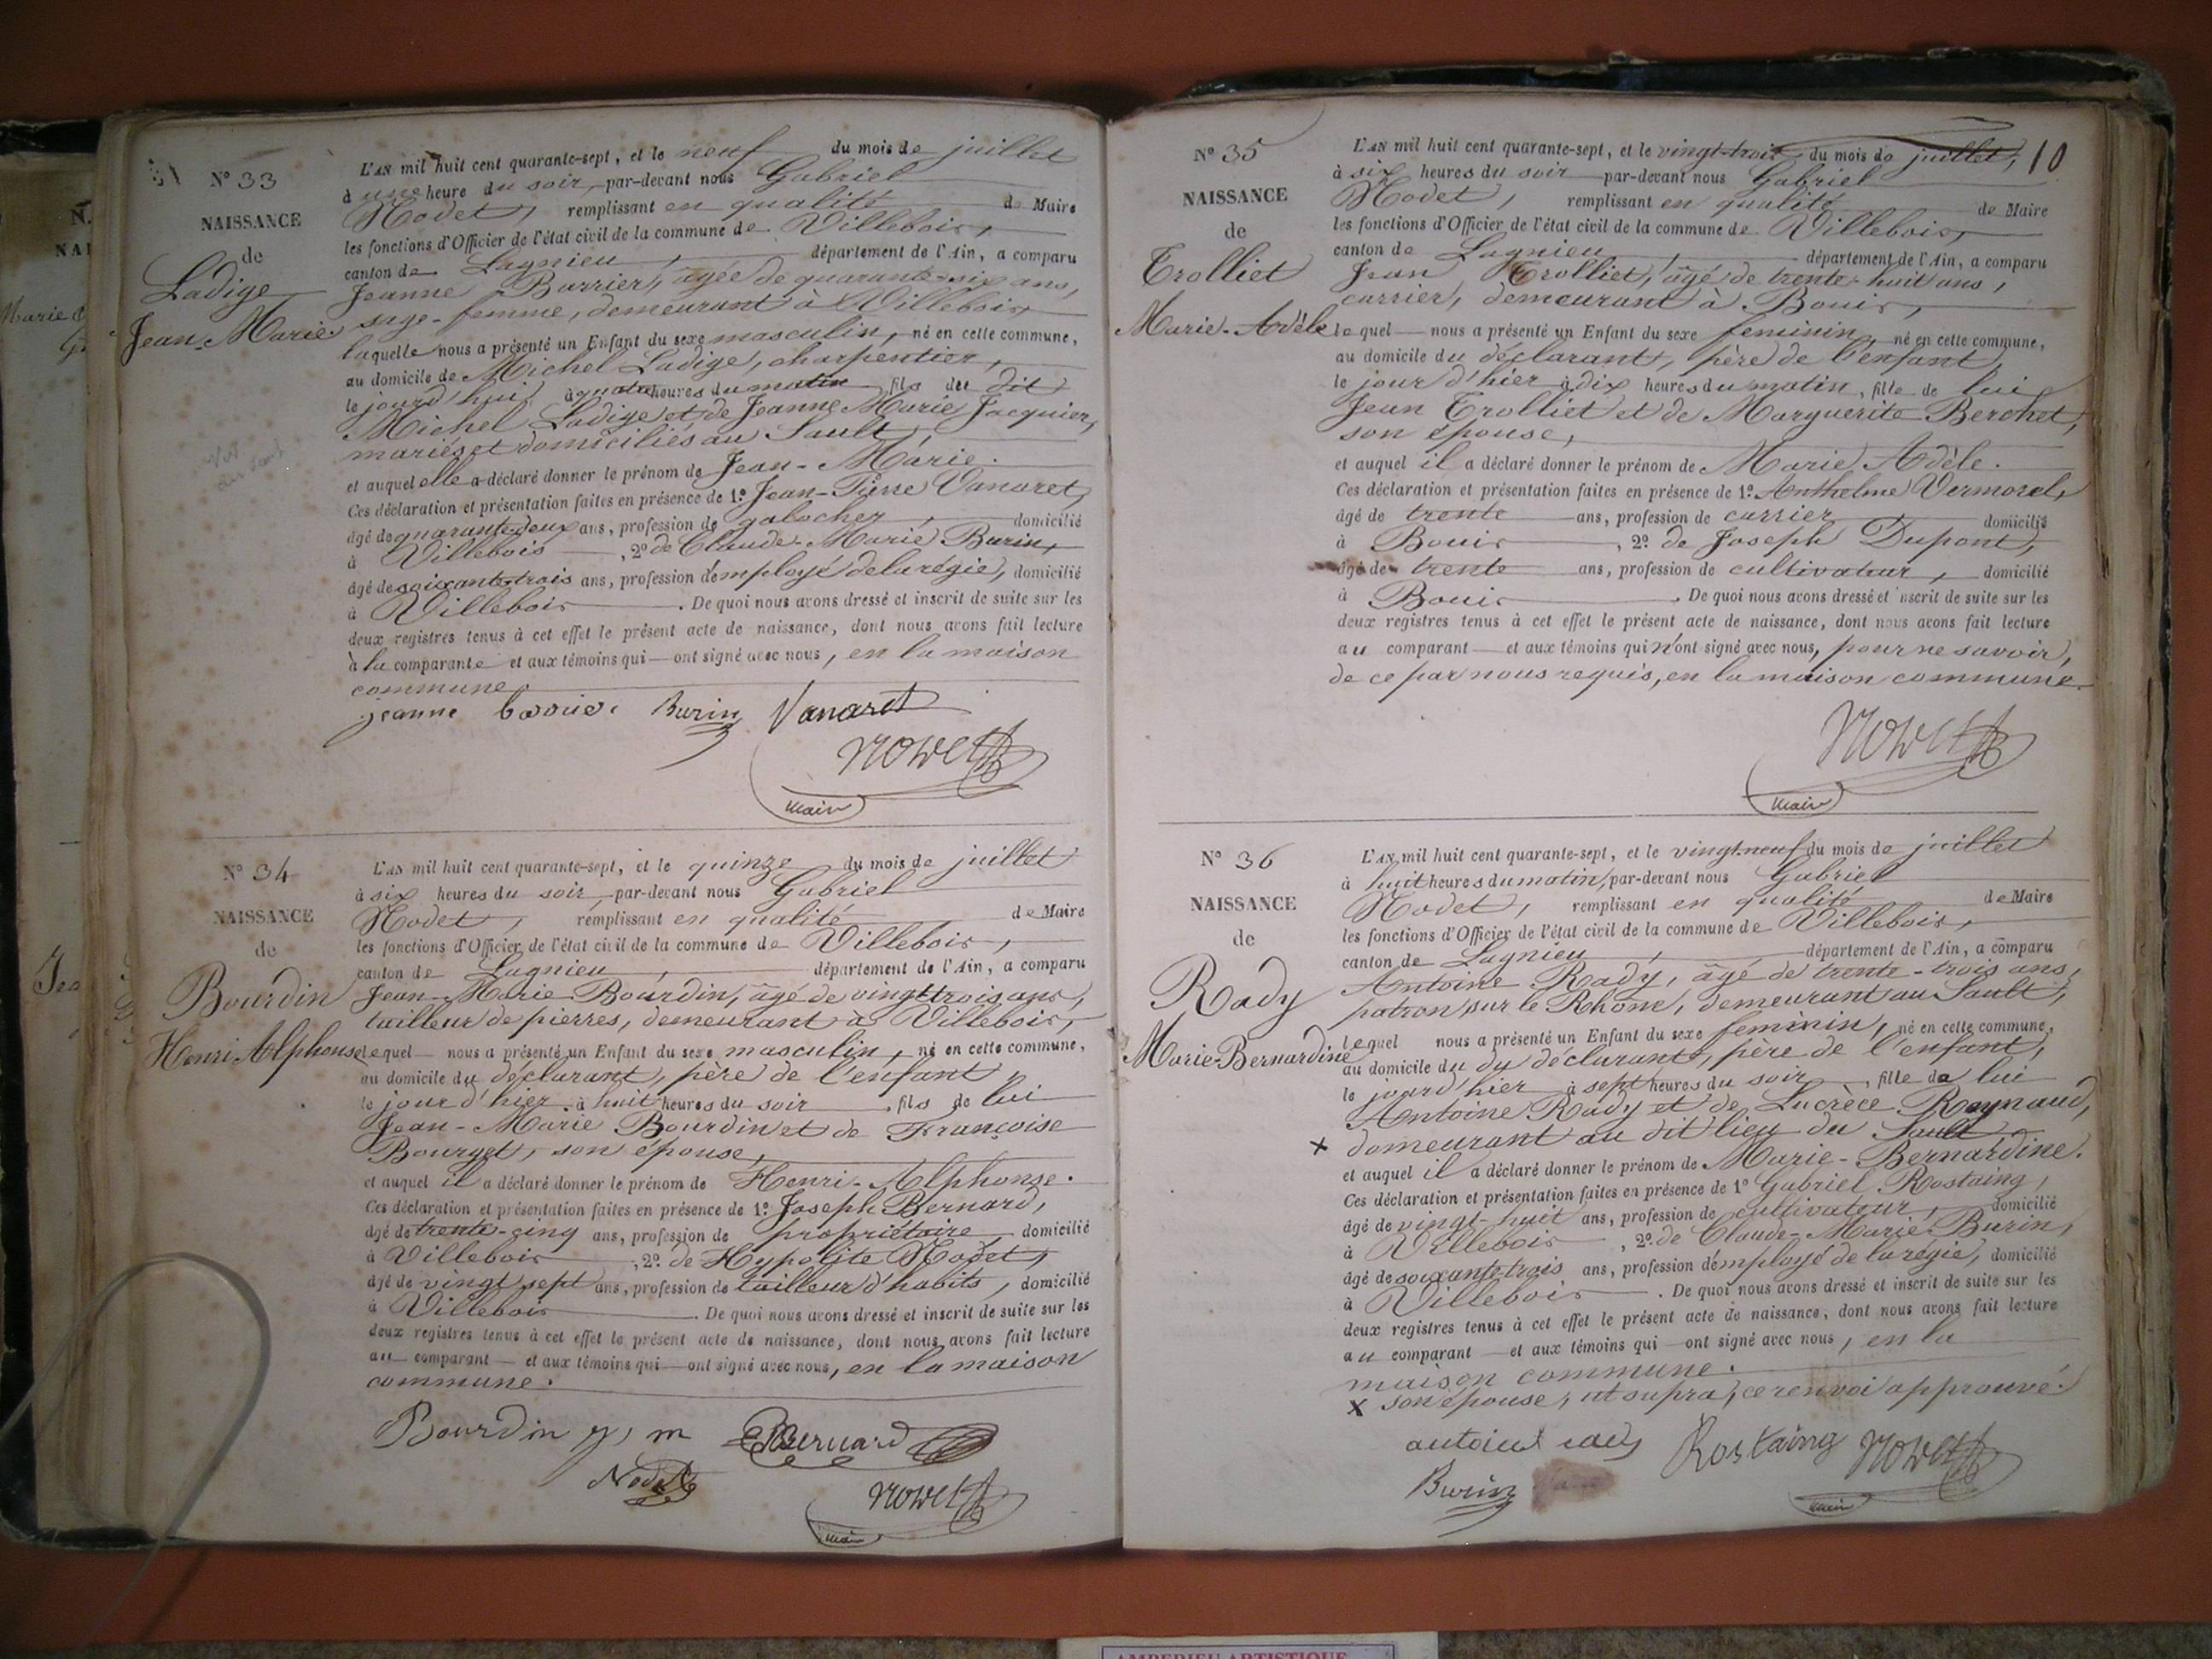 N° 33
NAISSANCE
de
Ladige
Jean-Marie
L'AN mil huit cent quarante-sept, et le neuf du mois de juillet
à une heure du soir, par-devant nous Gabriel
Nodet, remplissant en qualité de Maire
les fonctions d'Officier de l'état civil de la commune de Villebois,
canton de Lagnieu, département de l'Ain, a comparu
Jeanne Burrier, agée de quarante-six ans,
sage-femme, demeurant à Villebois
laquelle nous a présenté un Enfant du sexe masculin, né en cette commune,
au domicile de Michel Ladige, charpentier,
le jourd'hui à quatre heures du matin fils du dit
Michel Ladige et de Jeanne Marie Jacquier,
mariés et domiciliés au Sault,
et auquel elle a déclaré donner le prénom de Jean-Marie.
Ces déclaration et présentation faites en présence de 1° Jean-Pierre Vanaret,
âgé de quarante-deux ans, profession de galocher, domicilié
à Villebois, 2° de Claude-Marie Burin,
âgé de soixante-trois ans, profession d'employé de la régie, domicilié
à Villebois. De quoi nous avons dressé et inscrit de suite sur les
deux registres tenus à cet effet le présent acte de naissance, dont nous avons fait lecture
à la comparante et aux témoins qui ont signé avec nous, en la maison
commune.
jeanne Burin Vanaret
Nodet
maire
N° 34
NAISSANCE
de
Bourdin
Henri Alphonse
L'AN mil huit cent quarante-sept, et le quinze du mois de juillet
à six heures du soir, par-devant nous Gabriel
Nodet, remplissant en qualité de Maire
les fonctions d'Officier de l'état civil de la commune de Villebois,
canton de Lagnieu, département de l'Ain, a comparu
Jean-Marie Bourdin, âgé de vingt-trois ans,
tailleur de pierres, demeurant à Villebois,
lequel nous a présenté un Enfant du sexe masculin, né en cette commune,
au domicile du déclarant, père de l'enfant,
le jour d'hier à huit heures du soir, fils de lui
Jean-Marie Bourdin et de Françoise
Bourget, son épouse,
et auquel il a déclaré donner le prénom de Henri-Alphonse.
Ces déclaration et présentation faites en présence de 1° Joseph Bernard,
âgé de trente-cinq ans, profession de propriétaire, domicilié
à Villebois, 2° de Hypolite Nodet,
âgé de vingt sept ans, profession de tailleur d'habits, domicilié
à Villebois. De quoi nous avons dressé et inscrit de suite sur les
deux registres tenus à cet effet le présent acte de naissance, dont nous avons fait lecture
au comparant et aux témoins qui ont signé avec nous, en la maison
commune.
Bourdin j, m Bernard
Nodet Nodet
maire
10
N° 35
NAISSANCE
de
Trolliet
Marie-Adèle
L'AN mil huit cent quarante-sept, et le vingt-trois du mois de juillet,
à six heures du soir par-devant nous Gabriel
Nodet, remplissant en qualité de Maire
les fonctions d'Officier de l'état civil de la commune de Villebois,
canton de Lagnieu, département de l'Ain, a comparu
Jean Trolliet, âgé de trente-huit ans,
carrier, demeurant à Bouis,
lequel nous a présenté un Enfant du sexe feminin, né en cette commune,
au domicile du déclarant, père de l'enfant,
le jour d'hier à dix heures du matin, fille de lui
Jean Trolliet et de Marguerite Berchet,
son épouse,
et auquel il a déclaré donner le prénom de Marie Adèle.
Ces déclaration et présentation faites en présence de 1° Anthelme Vermorel,
âgé de trente ans, profession de carrier domicilié
à Bouis, 2° de Joseph Dupont,
âgé de trente ans, profession de cultivateur, domicilié
à Bouis. De quoi nous avons dressé et inscrit de suite sur les
deux registres tenus à cet effet le présent acte de naissance, dont nous avons fait lecture
au comparant et aux témoins qui n'ont signé avec nous, pour ne savoir,
de ce par nous requis, en la maison commune.
Nodet
maire
N° 36
NAISSANCE
de
Rady
Marie-Bernardine
L'AN mil huit cent quarante-sept, et le vingt-neuf du mois de juillet
à huit heures du matin, par-devant nous Gabriel
Nodet, remplissant en qualité de Maire
les fonctions d'Officier de l'état civil de la commune de Villebois,
canton de Lagnieu, département de l'Ain, a comparu
Antoine Rady, âgé de trente-trois ans,
patron sur le Rhône, demeurant au Sault,
lequel nous a présenté un Enfant du sexe feminin, né en cette commune,
au domicile du du déclarant, père de l'enfant,
le jourd'hier à sept heures du soir, fille de lui
Antoine Rady et de Lucrèce Raynaud,
x demeurant au dit lieu du Sault
et auquel il a déclaré donner le prénom de Marie-Bernardine.
Ces déclaration et présentation faites en présence de 1° Gabriel Rostaing,
âgé de vingt-huit ans, profession de cultivateur, domicilié
à Villebois, 2° de Claude-Marie Burin,
âgé de soixante-trois ans, profession d'employé de la régie, domicilié
à Villebois. De quoi nous avons dressé et inscrit de suite sur les
deux registres tenus à cet effet le présent acte de naissance, dont nous avons fait lecture
au comparant et aux témoins qui ont signé avec nous, en la
maison commune.
x son épouse, ut supra, ce renvoi approuvé.
Rostaing Nodet
Burin
maire
AMBERIEU ARTISTIQUE